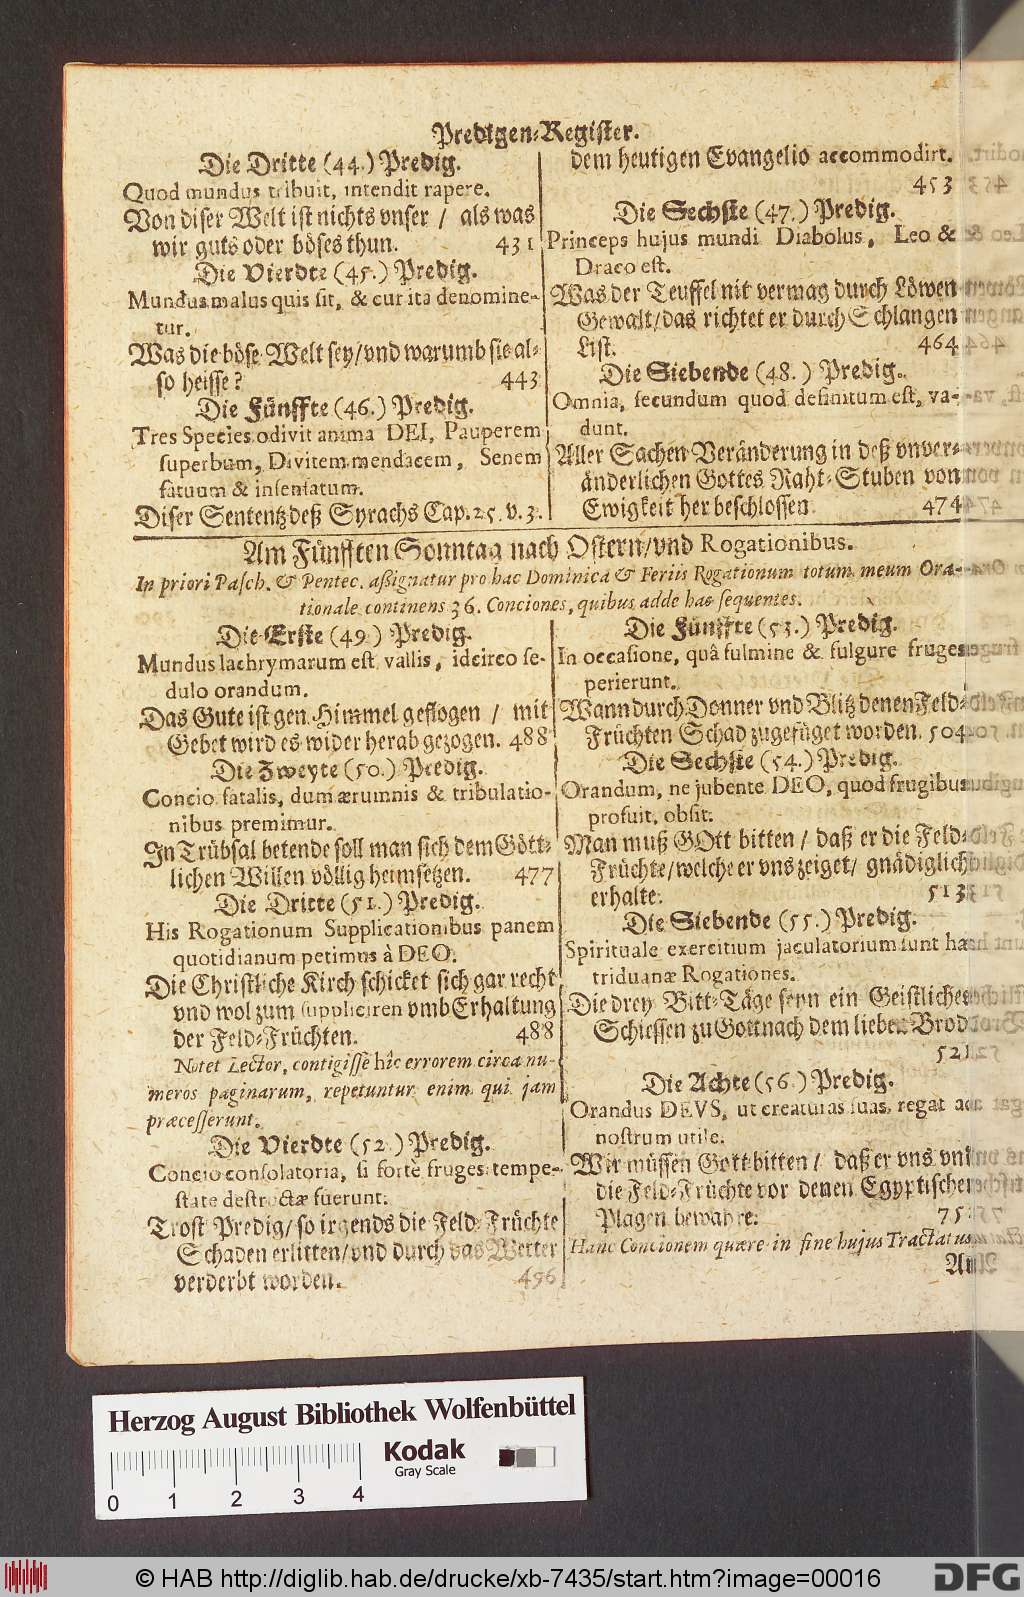 Predigen-Register.
Die Dritte (44.) Predig.
Quod mundus tribuit, intendit rapere.
Von diser Welt ist nichts vnser / als was
wir guts oder böses thun. 431
Die Vierdte (45.) Predig.
Mundus malus quis sit, & cur ita denomine-
tur.
Was die böse Welt sey/vnd warumb sie al-
so heisse? 443
Die Fünffte (46.) Predig.
Tres Species odivit anima DEI, Pauperem
superbum, Divitem mendacem, Senem
fatuum & insensatum.
Diser Sententz deß Syrachs Cap. 25. v. 3.
dem heutigen Evangelio accommodirt.
453
Die Sechste (47.) Predig.
Princeps hujus mundi Diabolus, Leo &
Draco est.
Was der Teuffel nit vermag durch Löwen
Gewalt/das richtet er durch Schlangen
List. 464
Die Siebende (48.) Predig.
Omnia, secundum quod definitum est, va-
dunt.
Aller Sachen Veränderung in deß vnver-
änderlichen Gottes Raht-Stuben von
Ewigkeit her beschlossen. 474
Am Fünfften Sonntag nach Ostern/vnd Rogationibus.
In priori Pasch. & Pentec. assignatur pro hac Dominica & Feriis Rogationum totum meum Ora-
tionale continens 36. Conciones, quibus adde has sequentes.
Die Erste (49.) Predig.
Mundus lachrymarum est vallis, idcirco se-
dulo orandum.
Das Gute ist gen Himmel geflogen / mit
Gebet wird es wider herab gezogen. 488
Die Zweyte (50.) Predig.
Concio fatalis, dum ærumnis & tribulatio-
nibus premimur.
In Trübsal betende soll man sich dem Gött-
lichen Willen völlig heimsetzen. 477
Die Dritte (51.) Predig.
His Rogationum Supplicationibus panem
quotidianum petimus à DEO.
Die Christliche Kirch schicket sich gar recht
vnd wol zum suppliciren vmb Erhaltung
der Feld-Früchten. 488
Notet Lector, contigisse hîc errorem circa nu-
meros paginarum, repetuntur enim qui jam
præcesserunt.
Die Vierdte (52.) Predig.
Concio consolatoria, si forte fruges tempe-
state destructæ fuerunt.
Trost Predig/so irgends die Feld-Früchte
Schaden erlitten/vnd durch das Wetter
verderbt worden. 496
Die Fünffte (53.) Predig.
In occasione, quâ fulmine & fulgure fruges
perierunt.
Wann durch Donner vnd Blitz denen Feld-
Früchten Schad zugefüget worden. 504
Die Sechste (54.) Predig.
Orandum, ne jubente DEO, quod frugibus
profuit, obsit.
Man muß GOtt bitten / daß er die Feld-
Früchte/welche er vns zeiget/ gnädiglich
erhalte. 513
Die Siebende (55.) Predig.
Spirituale exercitium jaculatorium sunt hæ
triduanæ Rogationes.
Die drey Bitt-Täge seyn ein Geistliches
Schiessen zu Gott nach dem lieben Brod
521
Die Achte (56.) Predig.
Orandus DEVS, ut creaturas suas, regat ad
nostrum utile.
Wir müssen Gott bitten / daß er vns vnd
die Feld-Früchte vor denen Egyptischen
Plagen bewahre. 75
Hanc Concionem quære in fine hujus Tractatus
Am
Herzog August Bibliothek Wolfenbüttel
Kodak
Gray Scale
0 1 2 3 4
© HAB http://diglib.hab.de/drucke/xb-7435/start.htm?image=00016
DFG